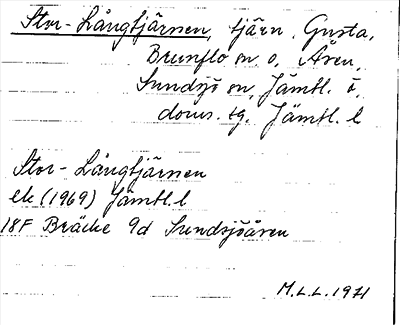 Stor-Långtjärnen, tjärn, Gusta,
Brunflo sn o. Åsen,
Sundsjö sn, Jämtl. ö.
doms. tg. Jämtl. l
Stor-Långtjärnen
ek (1969) Jämtl. l
18F Bräcke 9d Sundsjöåsen
M.L.L. 1971